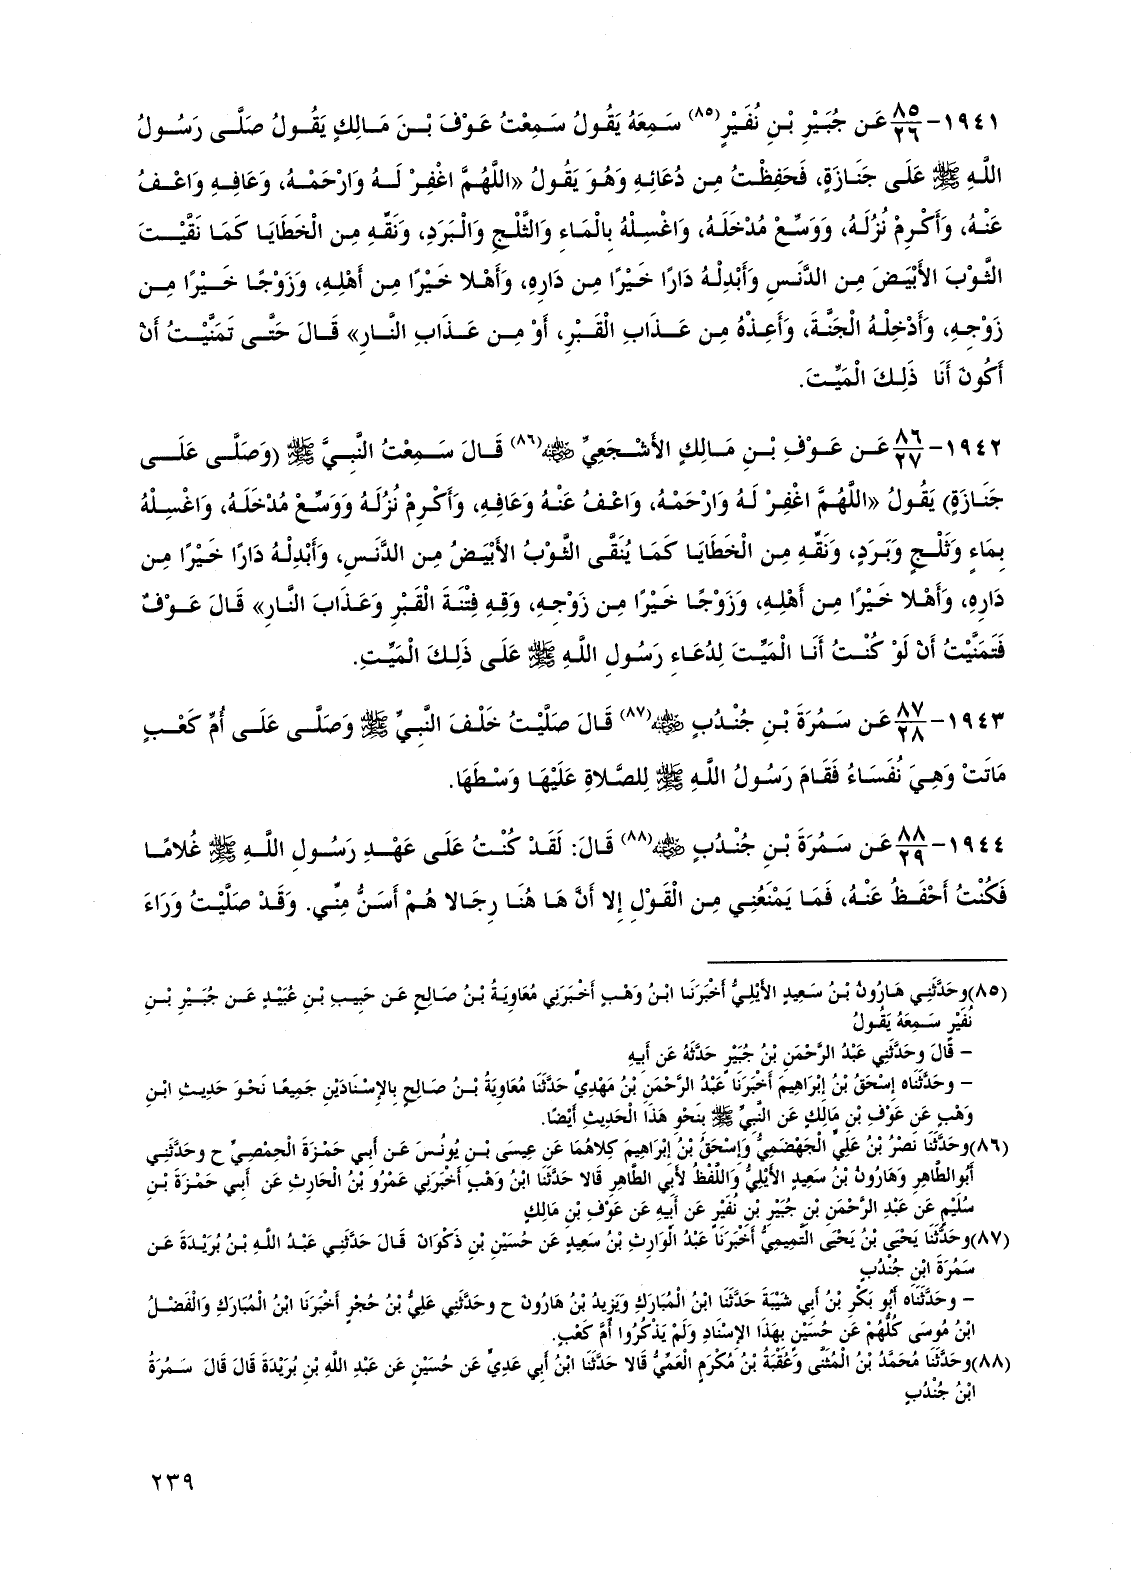 ١٩٤١- ٨٥/٢٦ عَن جُبَيْرِ بْنِ نُفَيْرٍ(٨٥) سَمِعَهُ يَقُولُ سَمِعْتُ عَوْفَ بْنَ مَالِكٍ يَقُولُ صَلَّى رَسُولُ
اللَّهِ ﷺ عَلَى جَنَازَةٍ، فَحَفِظْتُ مِن دُعَائِهِ وَهُوَ يَقُولُ «اللَّهُمَّ اغْفِرْ لَهُ وَارْحَمْهُ، وَعَافِهِ وَاعْفُ
عَنْهُ، وَأَكْرِمْ نُزُلَهُ، وَوَسِّعْ مُدْخَلَهُ، وَاغْسِلْهُ بِالْمَاءِ وَالثَّلْجِ وَالْبَرَدِ، وَنَقِّهِ مِن الْخَطَايَا كَمَا نَقَّيْتَ
الثَّوْبَ الأَبْيَضَ مِن الدَّنَسِ وَأَبْدِلْهُ دَارًا خَيْرًا مِن دَارِهِ، وَأَهْلا خَيْرًا مِن أَهْلِهِ، وَزَوْجًا خَيْرًا مِن
زَوْجِهِ، وَأَدْخِلْهُ الْجَنَّةَ، وَأَعِذْهُ مِن عَذَابِ الْقَبْرِ، أَوْ مِن عَذَابِ النَّارِ» قَالَ حَتَّى تَمَنَّيْتُ أَنْ
أَكُونَ أَنَا ذَلِكَ الْمَيِّتَ.
١٩٤٢- ٨٦/٢٧ عَن عَوْفِ بْنِ مَالِكٍ الأَشْجَعِيِّ ﵁(٨٦) قَالَ سَمِعْتُ النَّبِيَّ ﷺ (وَصَلَّى عَلَى
جَنَازَةٍ) يَقُولُ «اللَّهُمَّ اغْفِرْ لَهُ وَارْحَمْهُ، وَاعْفُ عَنْهُ وَعَافِهِ، وَأَكْرِمْ نُزُلَهُ وَوَسِّعْ مُدْخَلَهُ، وَاغْسِلْهُ
بِمَاءٍ وَثَلْجٍ وَبَرَدٍ، وَنَقِّهِ مِن الْخَطَايَا كَمَا يُنَقَّى الثَّوْبُ الأَبْيَضُ مِن الدَّنَسِ، وَأَبْدِلْهُ دَارًا خَيْرًا مِن
دَارِهِ، وَأَهْلا خَيْرًا مِن أَهْلِهِ، وَزَوْجًا خَيْرًا مِن زَوْجِهِ، وَقِهِ فِتْنَةَ الْقَبْرِ وَعَذَابَ النَّارِ» قَالَ عَوْفٌ
فَتَمَنَّيْتُ أَنْ لَوْ كُنْتُ أَنَا الْمَيِّتَ لِدُعَاءِ رَسُولِ اللَّهِ ﷺ عَلَى ذَلِكَ الْمَيِّتِ.
١٩٤٣- ٨٧/٢٨ عَن سَمُرَةَ بْنِ جُنْدُبٍ ﵁(٨٧) قَالَ صَلَّيْتُ خَلْفَ النَّبِيِّ ﷺ وَصَلَّى عَلَى أُمِّ كَعْبٍ
مَاتَتْ وَهِيَ نُفَسَاءُ فَقَامَ رَسُولُ اللَّهِ ﷺ لِلصَّلاةِ عَلَيْهَا وَسْطَهَا.
١٩٤٤- ٨٨/٢٩ عَن سَمُرَةَ بْنِ جُنْدُبٍ ﵁(٨٨) قَالَ: لَقَدْ كُنْتُ عَلَى عَهْدِ رَسُولِ اللَّهِ ﷺ غُلامًا
فَكُنْتُ أَحْفَظُ عَنْهُ، فَمَا يَمْنَعُنِي مِن الْقَوْلِ إِلا أَنَّ هَا هُنَا رِجَالا هُمْ أَسَنُّ مِنِّي. وَقَدْ صَلَّيْتُ وَرَاءَ
(٨٥)وحَدَّثَنِي هَارُونُ بْنُ سَعِيدٍ الأَيْلِيُّ أَخْبَرَنَا ابْنُ وَهْبٍ أَخْبَرَنِي مُعَاوِيَةُ بْنُ صَالِحٍ عَن حَبِيبِ بْنِ عُبَيْدٍ عَن جُبَيْرِ بْنِ
نُفَيْرٍ سَمِعَهُ يَقُولُ
– قَالَ وحَدَّثَنِي عَبْدُ الرَّحْمَنِ بْنُ جُبَيْرٍ حَدَّثَهُ عَن أَبِيهِ
– وحَدَّثَنَاه إِسْحَقُ بْنُ إِبْرَاهِيمَ أَخْبَرَنَا عَبْدُ الرَّحْمَنِ بْنُ مَهْدِيٍّ حَدَّثَنَا مُعَاوِيَةُ بْنُ صَالِحٍ بِالإِسْنَادَيْنِ جَمِيعًا نَحْوَ حَدِيثِ ابْنِ
وَهْبٍ عَن عَوْفِ بْنِ مَالِكٍ عَن النَّبِيِّ ﷺ بِنَحْوِ هَذَا الْحَدِيثِ أَيْضًا.
(٨٦)وحَدَّثَنَا نَصْرُ بْنُ عَلِيٍّ الْجَهْضَمِيُّ وَإِسْحَقُ بْنُ إِبْرَاهِيمَ كِلاهُمَا عَن عِيسَى بْنِ يُونُسَ عَن أَبِي حَمْزَةَ الْحِمْصِيِّ ح وحَدَّثَنِي
أَبُوالطَّاهِرِ وَهَارُونُ بْنُ سَعِيدٍ الأَيْلِيُّ وَاللَّفْظُ لأَبِي الطَّاهِرِ قَالا حَدَّثَنَا ابْنُ وَهْبٍ أَخْبَرَنِي عَمْرُو بْنُ الْحَارِثِ عَن أَبِي حَمْزَةَ بْنِ
سُلَيْمٍ عَن عَبْدِ الرَّحْمَنِ بْنِ جُبَيْرِ بْنِ نُفَيْرٍ عَن أَبِيهِ عَن عَوْفِ بْنِ مَالِكٍ
(٨٧)وحَدَّثَنَا يَحْيَى بْنُ يَحْيَى التَّمِيمِيُّ أَخْبَرَنَا عَبْدُ الْوَارِثِ بْنُ سَعِيدٍ عَن حُسَيْنِ بْنِ ذَكْوَانَ قَالَ حَدَّثَنِي عَبْدُ اللَّهِ بْنُ بُرَيْدَةَ عَن
سَمُرَةَ ابْنِ جُنْدُبٍ
– وحَدَّثَنَاه أَبُو بَكْرِ بْنُ أَبِي شَيْبَةَ حَدَّثَنَا ابْنُ الْمُبَارَكِ وَيَزِيدُ بْنُ هَارُونَ ح وحَدَّثَنِي عَلِيُّ بْنُ حُجْرٍ أَخْبَرَنَا ابْنُ الْمُبَارَكِ وَالْفَضْلُ
ابْنُ مُوسَى كُلُّهُمْ عَن حُسَيْنٍ بِهَذَا الإِسْنَادِ وَلَمْ يَذْكُرُوا أُمَّ كَعْبٍ.
(٨٨)وحَدَّثَنَا مُحَمَّدُ بْنُ الْمُثَنَّى وَعُقْبَةُ بْنُ مُكْرَمٍ الْعَمِّيُّ قَالا حَدَّثَنَا ابْنُ أَبِي عَدِيٍّ عَن حُسَيْنٍ عَن عَبْدِ اللَّهِ بْنِ بُرَيْدَةَ قَالَ قَالَ سَمُرَةُ
ابْنُ جُنْدُبٍ
٢٣٩